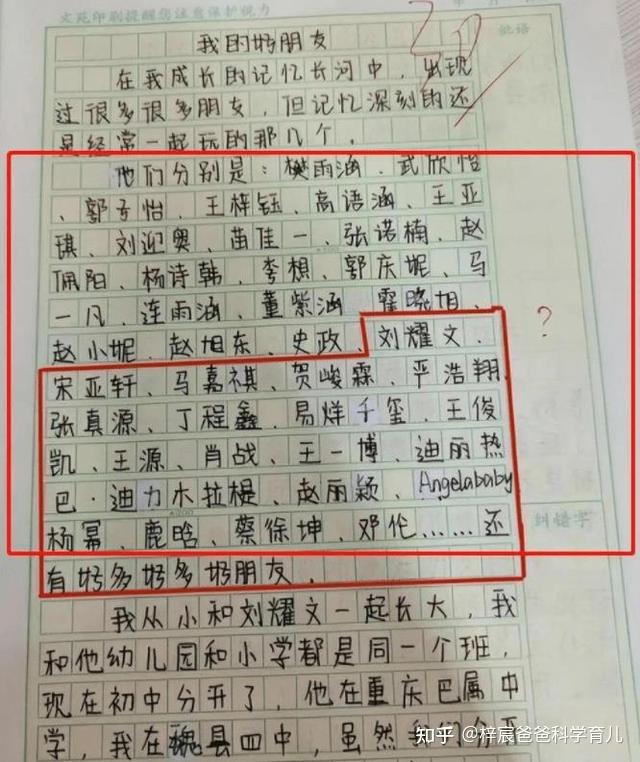 文苑印刷提醒您注意保护视力
批语
我的好朋友
在我成长的记忆长河中，出现
过很多很多朋友，但记忆深刻的还
是经常一起玩的那几个，
他们分别是：樊雨涵、武欣怡
、郭子怡、王梓钰、高语涵、王亚
琪、刘迎奥、苗佳一、张诺楠、赵
佩阳、杨诗韩、李想、郭庆妮、马
一凡、连雨涵、董紫涵、霍晓旭、
赵小妮、赵旭东、史政、刘耀文、
宋亚轩、马嘉祺、贺峻霖、严浩翔、
张真源、丁程鑫、易烊千玺、王俊
凯、王源、肖战、王一博、迪丽热
巴·迪力木拉提、赵丽颖、Angelababy
杨幂、鹿晗、蔡徐坤、邓伦……还
有好多好多好朋友，
我从小和刘耀文一起长大，我
和他幼儿园和小学都是同一个班，
现在初中分开了，他在重庆巴属中
学，我在魏县四中，虽然我们分开
？
纠错字
知乎 @梓宸爸爸科学育儿